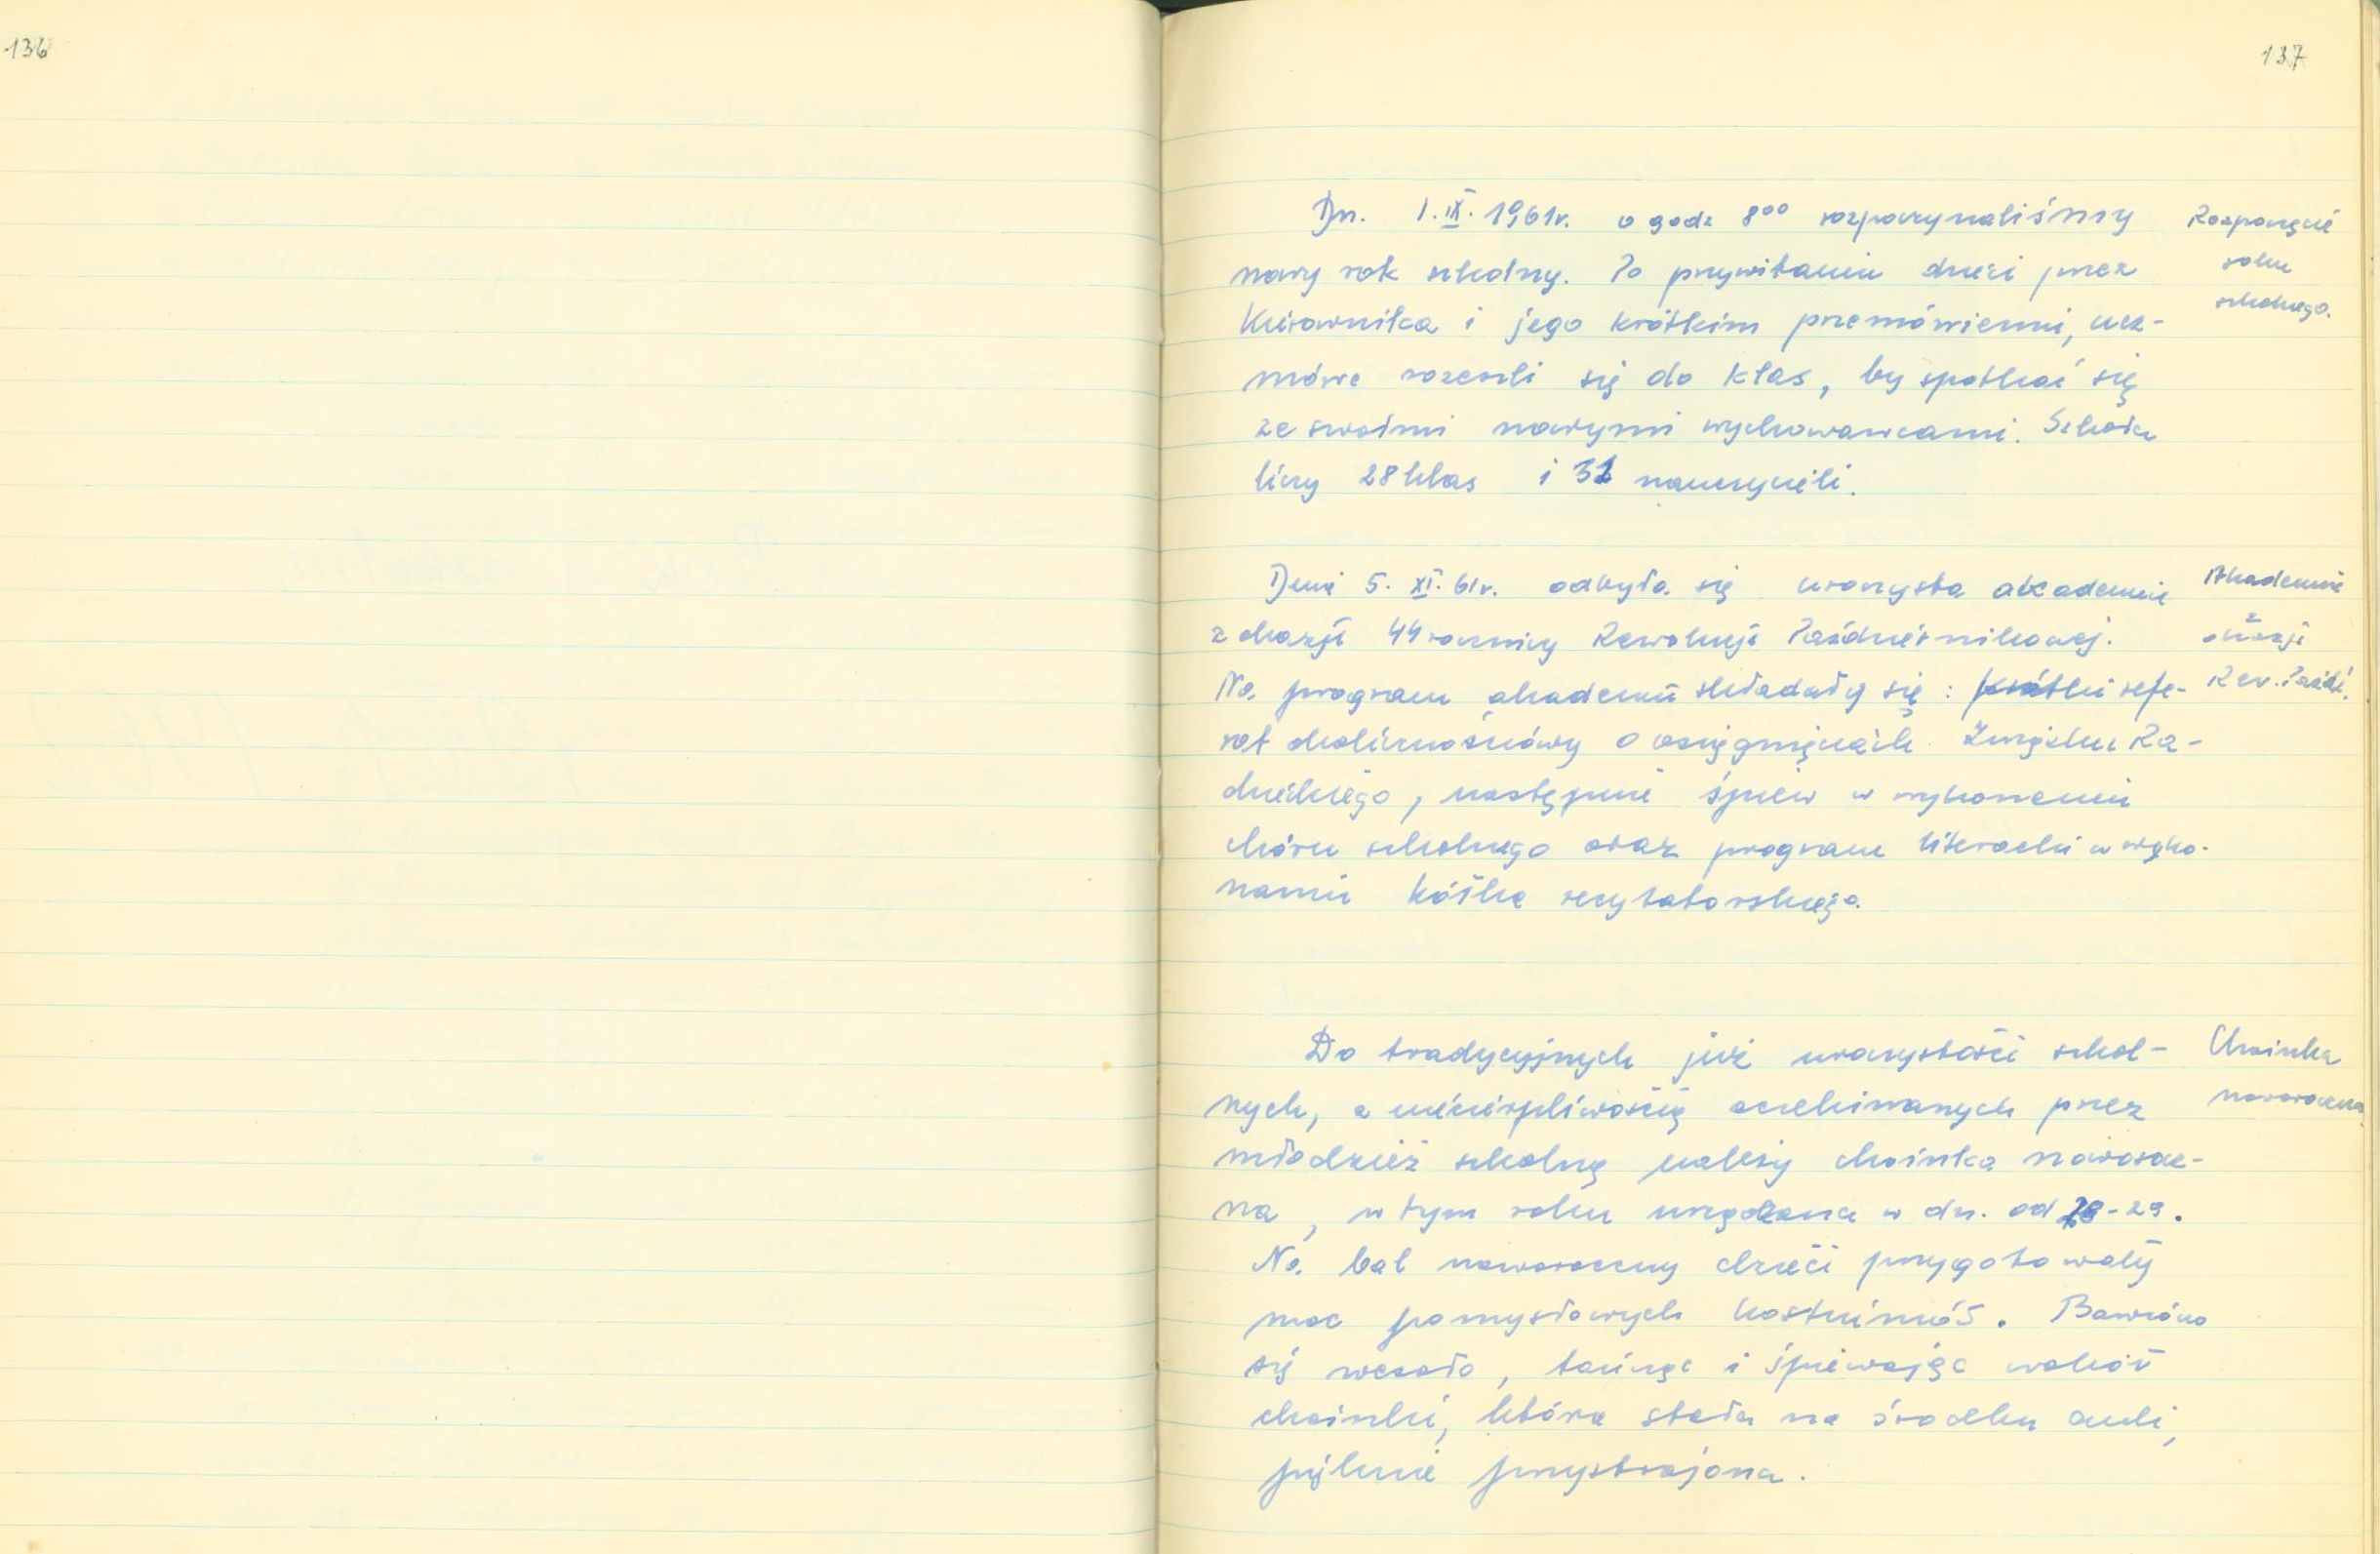 136
137
Dn. 1.IX.1961r. o godz 8⁰⁰ rozpoczynaliśmy
nowy rok szkolny. Po przywitaniu dzieci przez
Kierownika i jego krótkim przemówieniu, ucz-
niowie rozeszli się do klas, by spotkać się
ze swoimi nowymi wychowawcami. Szkoła
liczy 28 klas i 32 nauczycieli.
Rozpoczęcie
roku
szkolnego.
Dnia 5. XI. 61r. odbyła się uroczysta akademia
z okazji 44 rocznicy Rewolucji Październikowej.
Na program akademii składały się: krótki refe-
rat okolicznościowy o osiągnięciach Związku Ra-
dzieckiego, następnie śpiew w wykonaniu
chóru szkolnego oraz program literacki w wyko-
naniu kółka recytatorskiego.
Akademia
z
okazji
Rew. Paźdź.
Do tradycyjnych już uroczystości szkol-
nych, z niecierpliwością oczekiwanych przez
młodzież szkolną należy choinka noworocz-
na, w tym roku urządzona w dn. od 28-29.
Na bal noworoczny dzieci przygotowały
moc pomysłowych kostiumów. Bawiono
się wesoło, tańcząc i śpiewając wokół
choinki, która stała na środku auli,
pięknie przystrojona.
Choinka
noworoczna